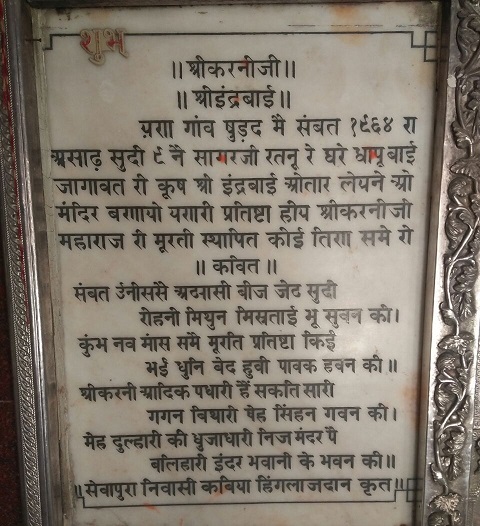 शुभ
॥ श्रीकरनीजी॥
॥ श्रीइंद्रबाई॥
पणा गांव षुड़द मै संबत १९६४ रा
असाढ़ सुदी ९ नै सागरजी रतनू रे घरे धापूबाई
जागावत री कूष श्री इंद्रबाई ओतार लेयने ओ
मंदिर बणायो यणारी प्रतिष्टा हीय श्रीकरनीजी
महाराज री मूरती स्थापित कीई तिण समे रो
॥ कवित ॥
संबत उंनीससै अठ्यासी बीज जेठ सुदी
रोहनी मिथुन मिस्रताई भू सुवन की।
कुंभ नव मांस समै मूरति प्रतिष्टा किई
भई धुनि बेद हुवी पावक हवन की॥
श्रीकरनी आदिक पधारी हैं सकति सारी
गगन विचारी षेह सिंहन गवन की।
मेह दुल्हारी की धुजाधारी निज मंदर पै
बलिहारी इंदर भवानी के भवन की॥
॥सेवापुरा निवासी कबिया हिंगलाजदान कृत॥